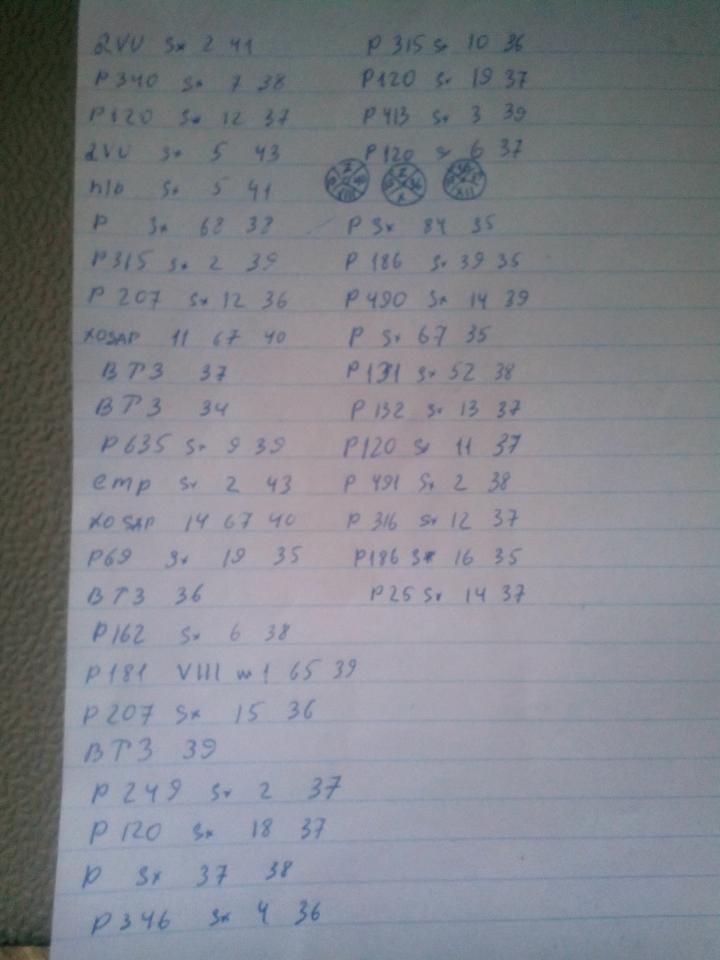 2VU Sx 2 41
P340 Sx 7 38
P120 Sx 12 37
2VU Sx 5 43
n/o Sx 5 41
P Sx 62 38
P315 Sx 2 39
P 207 Sx 12 36
XOSAP 11 67 40
BT3 37
BT3 34
P635 Sx 9 39
emp Sx 2 43
XOSAP 14 67 40
P69 Sx 19 35
BT3 36
P162 Sx 6 38
P181 VIII m1 65 39
P207 Sx 15 36
BT3 39
P 249 Sx 2 37
P 120 Sx 18 37
P Sx 37 38
P346 Sx 4 36
P 315 Sx 10 36
P120 Sx 19 37
P413 Sx 3 39
P120 Sx 6 37
P Sx 84 35
P 186 Sx 39 35
P490 Sx 14 39
P Sx 67 35
P131 Sx 52 38
P 132 Sx 13 37
P120 Sx 11 37
P 491 Sx 2 38
P 316 Sx 12 37
P186 Sx 16 35
P25 Sx 14 37